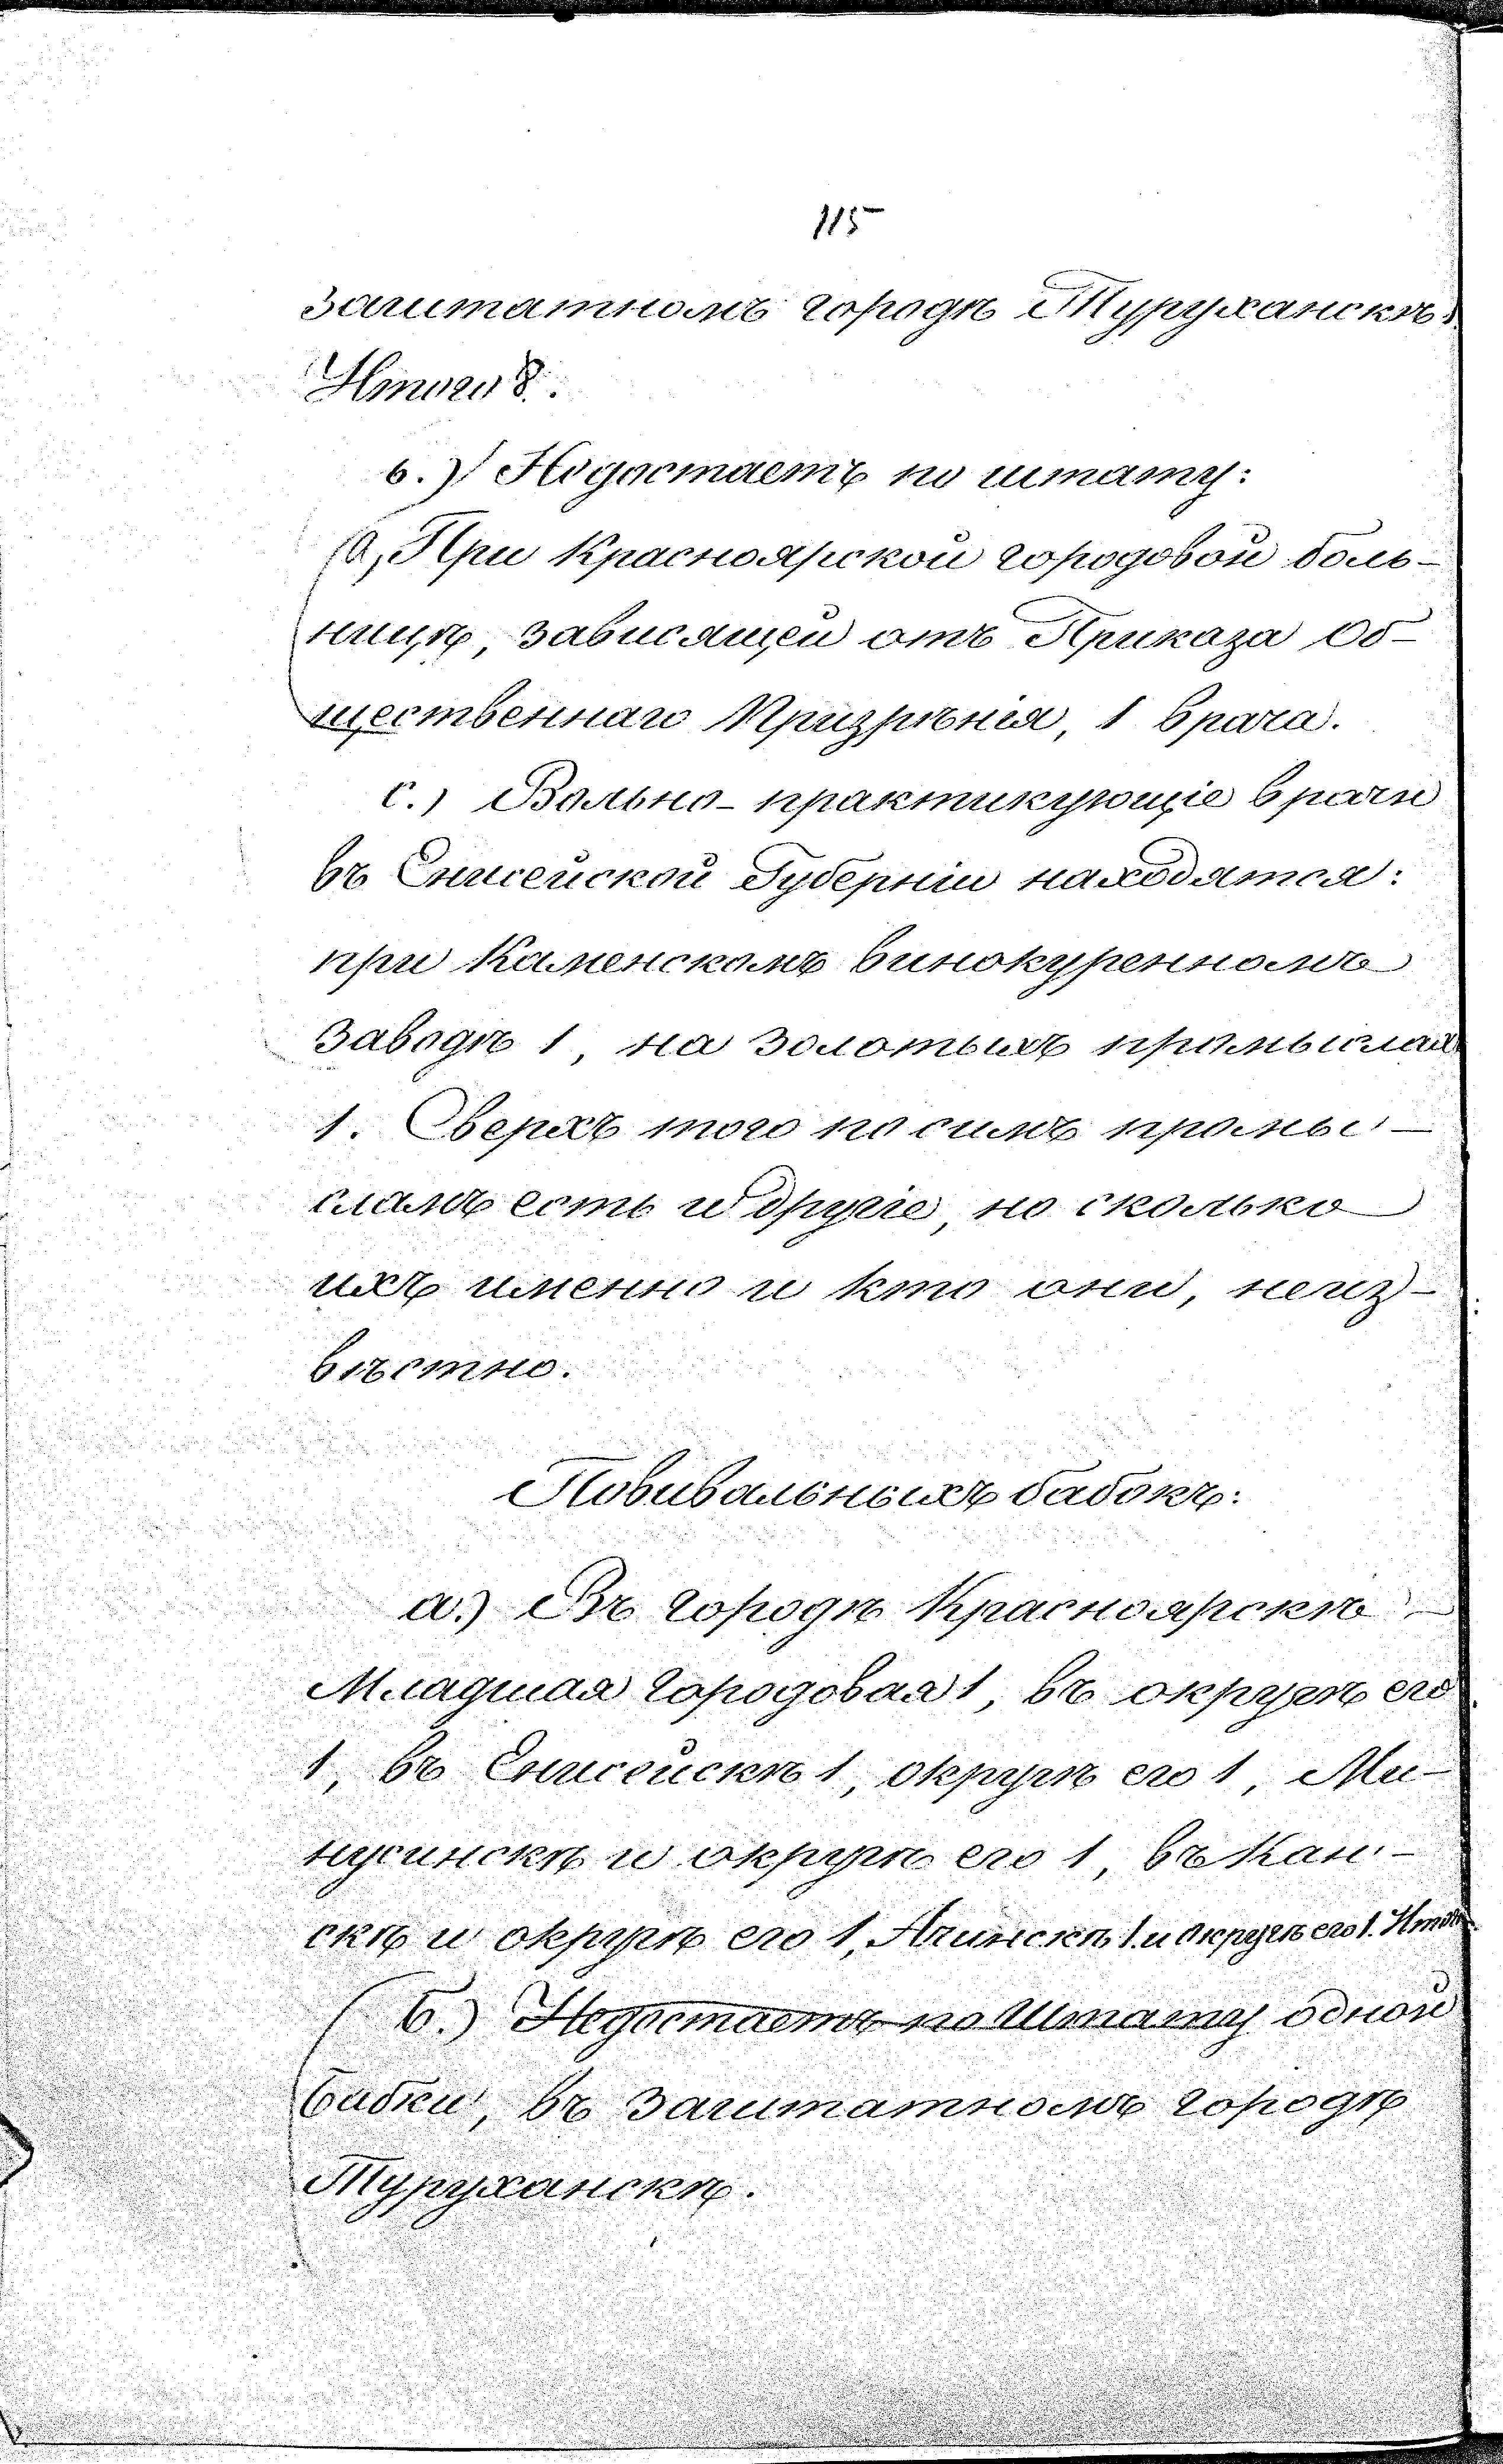 115
заштатномъ городѣ Туруханскѣ.
Итого 8.
в.) Недостаетъ по штату:
а, При Красноярской городовой боль-
ницѣ, зависящей отъ Приказа Об-
щественнаго Призрѣнія, 1 врача.
с.) Вольно-практикующіе врачи
въ Енисейской Губерніи находятся:
при Каменскомъ винокуренномъ
заводѣ 1, на золотыхъ промыслах
1. Сверхъ того по симъ промы-
сламъ есть и другіе, но сколько
ихъ именно и кто они, неиз-
вѣстно.
Повивальныхъ бабокъ:
а.) Въ городѣ Красноярскѣ -
Младшая городовая 1, въ округѣ его
1, въ Енисейскѣ 1, округѣ его 1, Ми-
нусинскѣ и округѣ его 1, въ Кан-
скѣ и округѣ его 1, Ачинскѣ 1. и округѣ его 1.
б.) Недостаетъ по Штату одной
бабки, въ заштатномъ городѣ
Туруханскѣ.